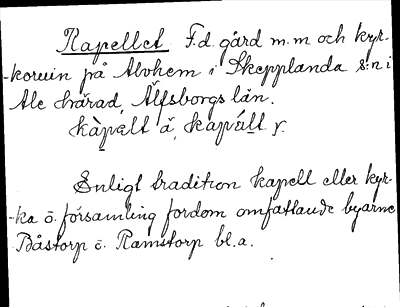 Kapellet F.d. gård m.m och kyr-
-koruin på Alvhem i Skepplanda s:n i
Ale härad, Älfsborgs län.
kàpelt ä, kapúlt r.
Enligt tradition kapell eller kyr-
-ka o. församling fordom omfattande byarne
Båstorp o. Ramstorp bl.a.